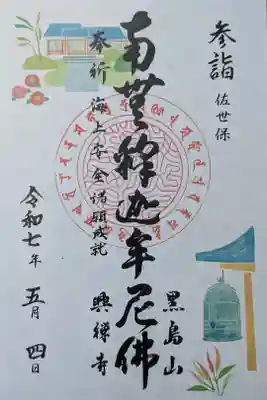 参詣 佐世保
黒島山
興禅寺
南無釈迦牟尼佛
奉祈 海上安全諸願成就
令和七年 五月 四日